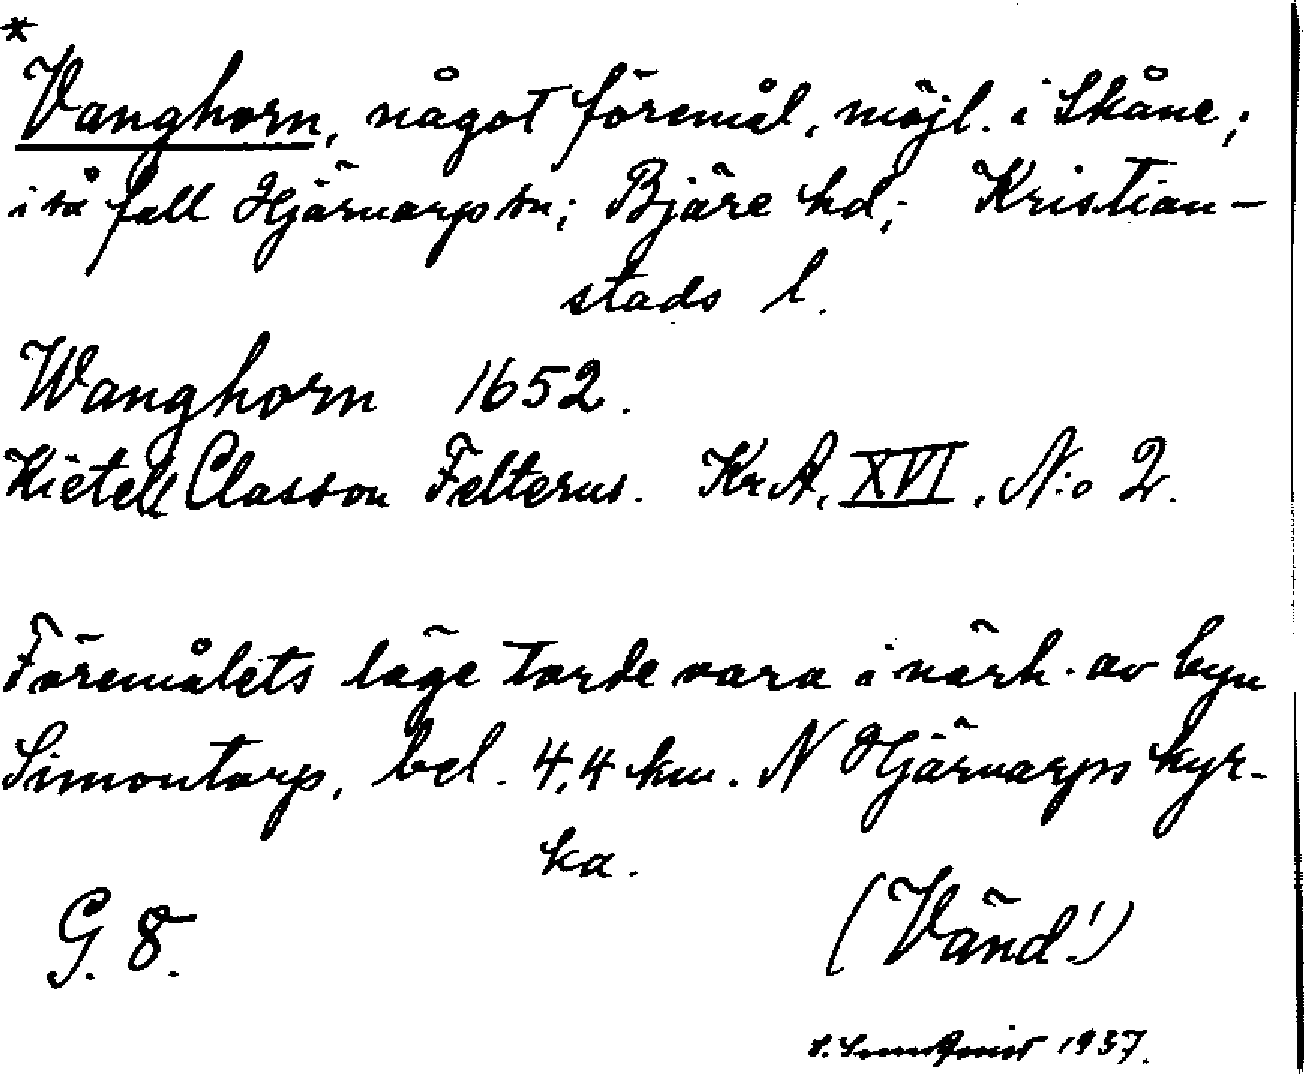 *
Vanghorn, något föremål, möjl. i Skåne;
i så fall Hjärnarp sn; Bjäre hd; Kristian-
stads l.
Wanghorn 1652.
Kietell Classon Felterus. Kr.A. XVI, N:o 2.
Föremålets läge torde vara i närh. av byn
Simontorp, bel. 4,4 km. N Hjärnarps kyr-
ka.
G. 8.
(Vänd!)
1937.